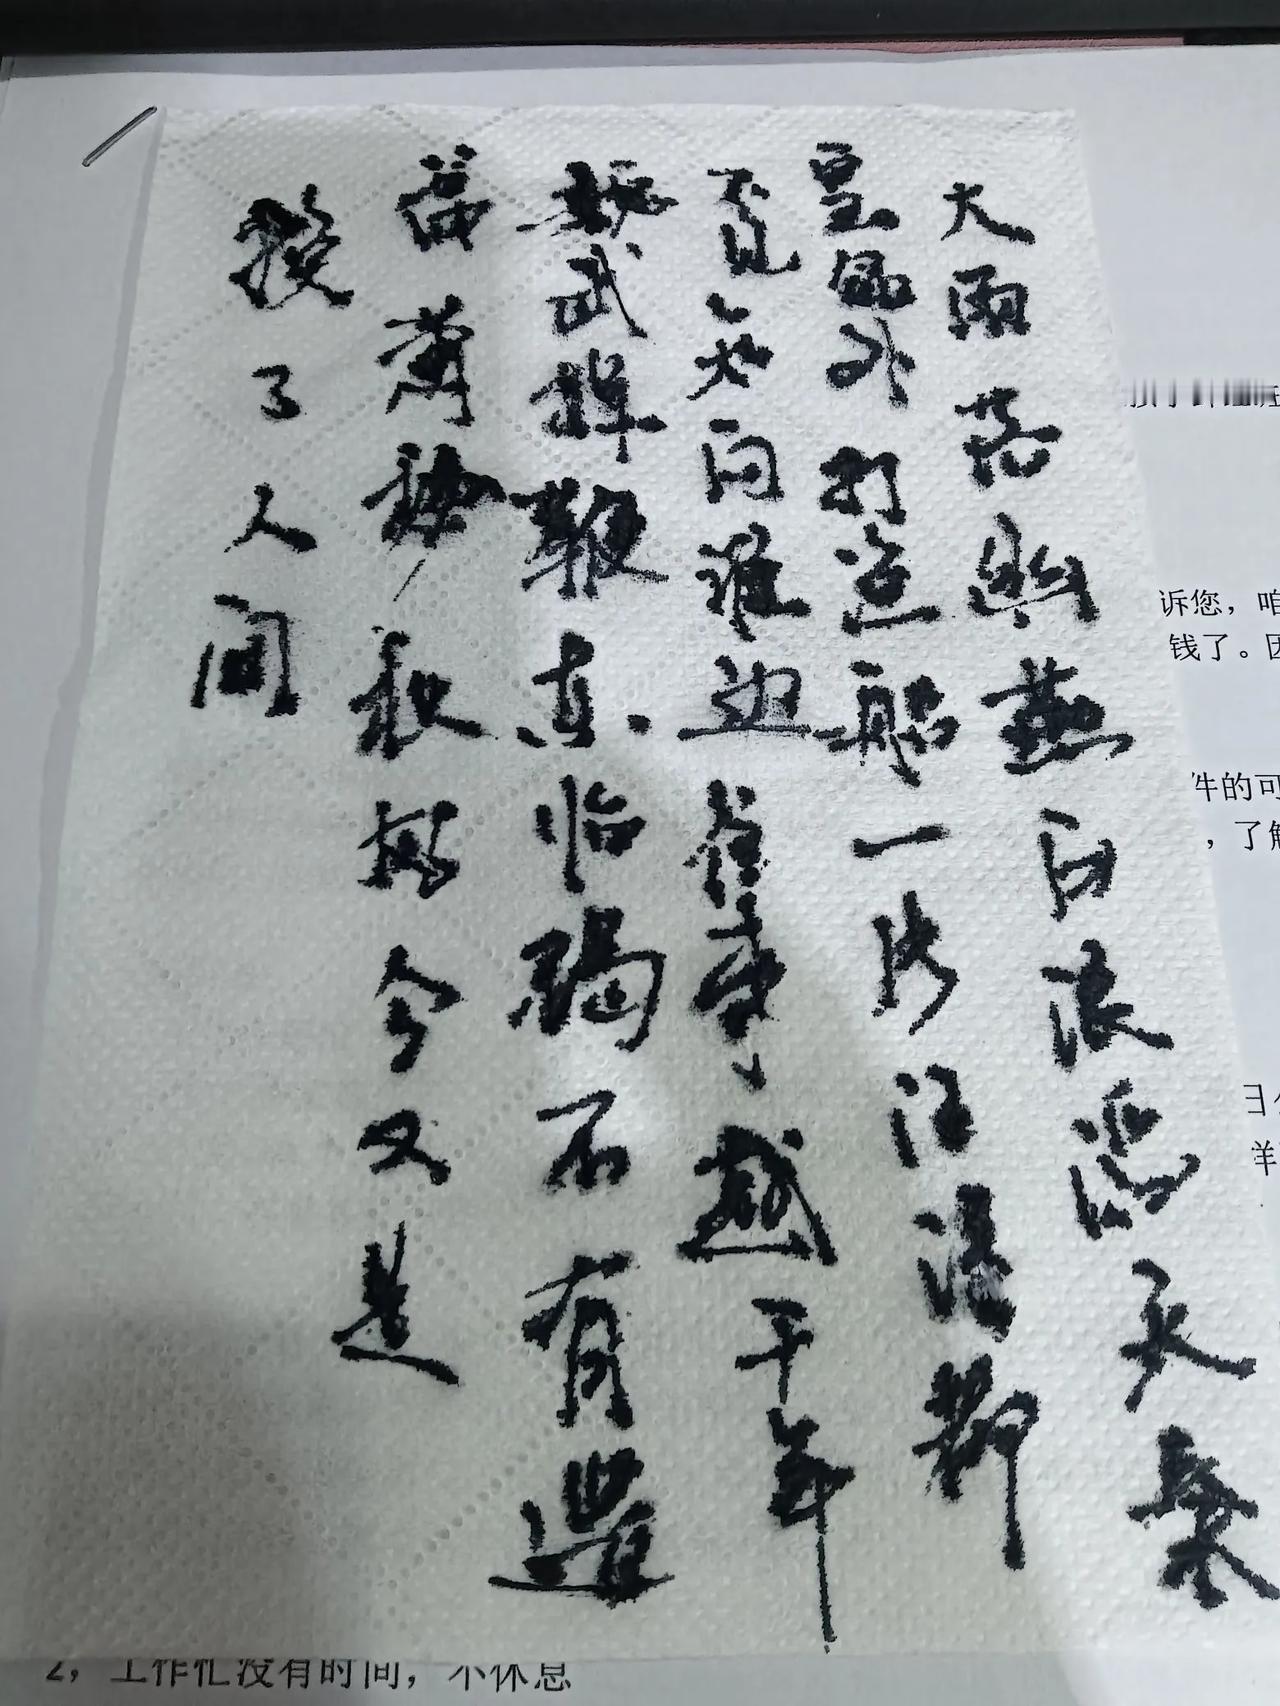 大雨落幽燕白浪滔天秦
皇岛外打鱼船一片汪洋都
不见知向谁边往事越千年
魏武挥鞭东临碣石有遗
篇萧瑟秋风今又是
换了人间
诉您，咱
钱了。因
件的可
，了解
2，工作忙没有时间，不休息